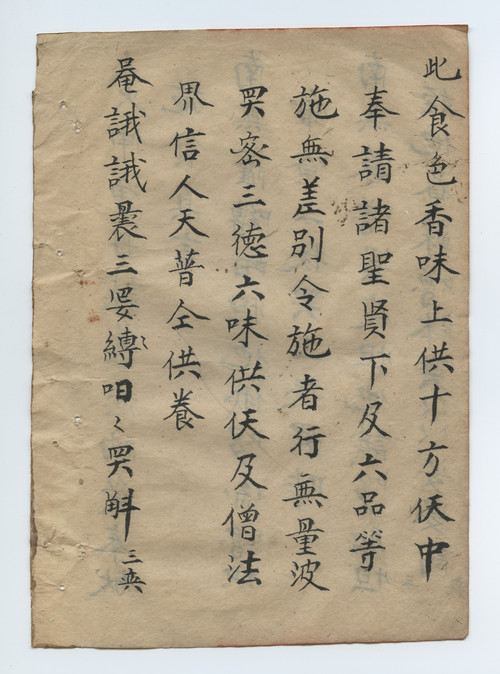 此食色香味上供十方仸中
奉請諸聖賢下及六品等
施無差別令施者行無量波
密三德六味供仸及僧法
界信人天普仝供養
菴誐誐曩三縛斛三